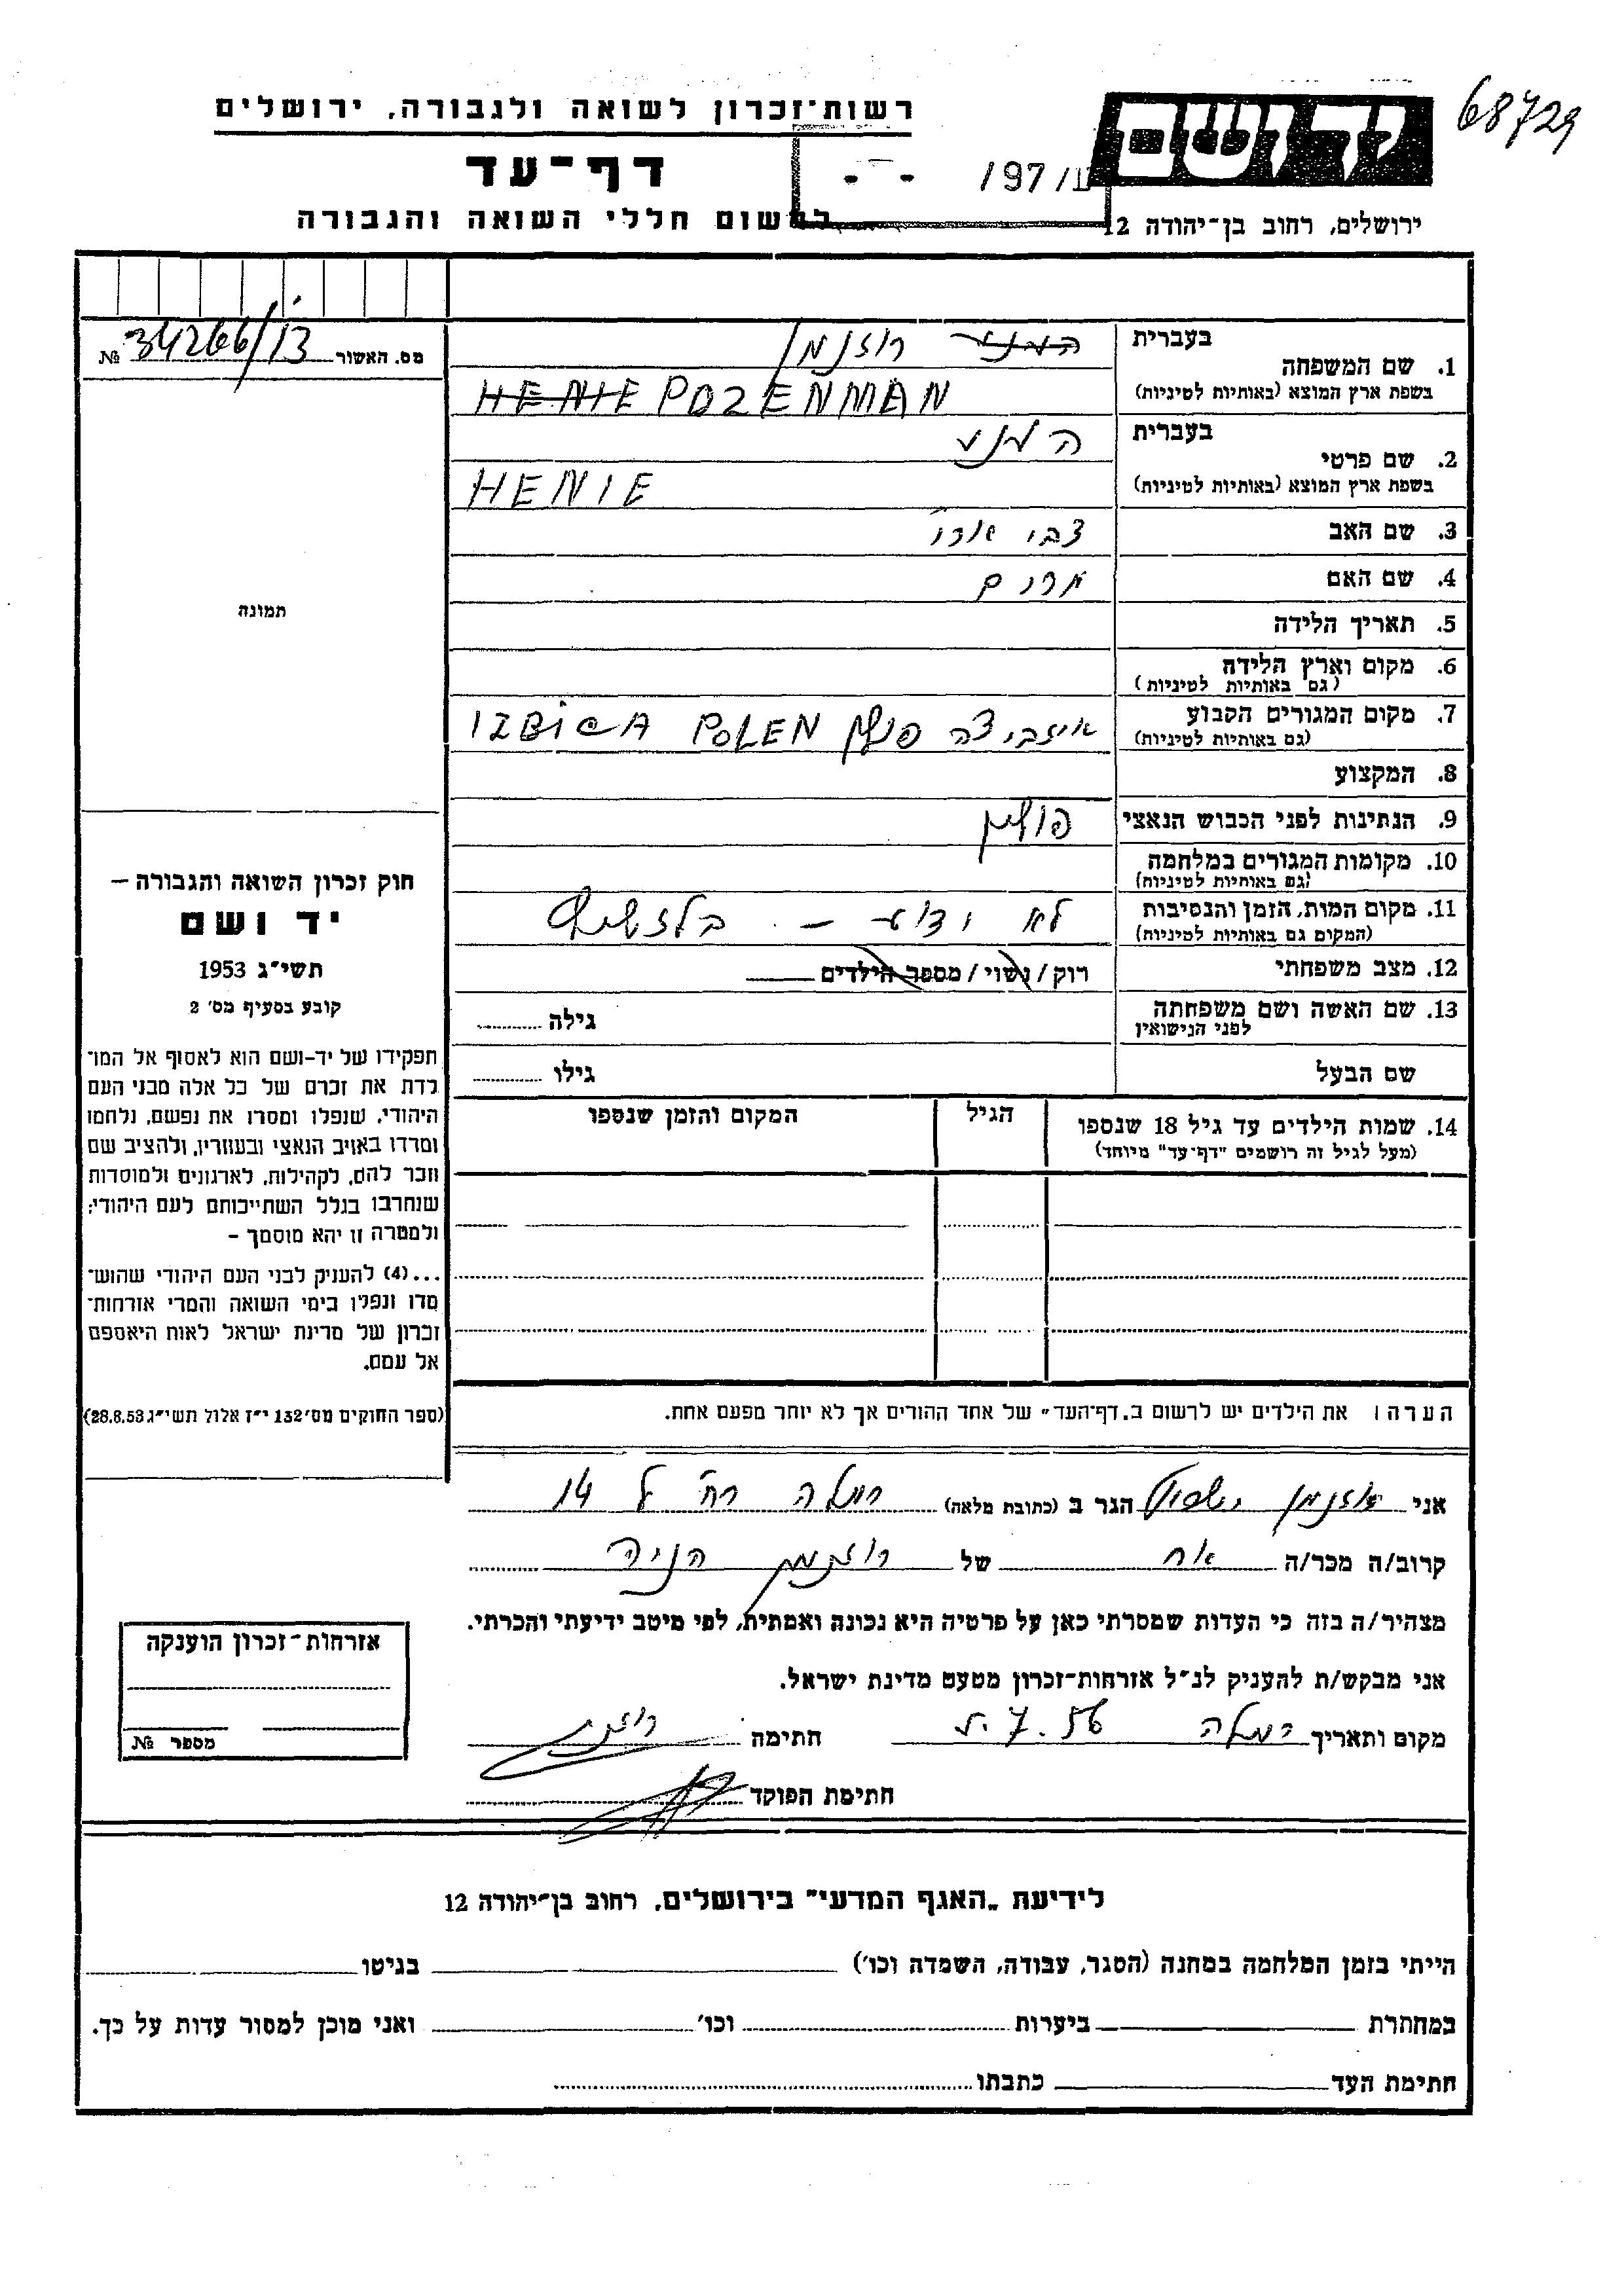 68729
רשות־זכרון לשואה ולגבורה, ירושלים
יד ושם
דף־עד
/97/
לרשום חללי השואה והגבורה
ירושלים, רחוב בן־יהודה 12
מס. האשור 34266/13 №
1. שם המשפחה
בעברית
רוזנמן
בשפת ארץ המוצא (באותיות לטיניות)
HENIE ROZENMAN
2. שם פרטי
בעברית
הניע
בשפת ארץ המוצא (באותיות לטיניות)
HENIE
3. שם האב
צבי
4. שם האם
מרים
5. תאריך הלידה
6. מקום וארץ הלידה
(גם באותיות לטיניות)
7. מקום המגורים הקבוע
(גם באותיות לטיניות)
איזביצה פולין IZBICA POLEN
8. המקצוע
9. הנתינות לפני הכבוש הנאצי
פולין
10. מקומות המגורים במלחמה
(גם באותיות לטיניות)
11. מקום המות, הזמן והנסיבות
(המקום גם באותיות לטיניות)
לא ידוע –
12. מצב משפחתי
רוק / נשוי / מספר הילדים
13. שם האשה ושם משפחתה
לפני הנישואין
גילה
שם הבעל
גילו
14. שמות הילדים עד גיל 18 שנספו
(מעל לגיל זה רושמים "דף־עד" מיוחד)
הגיל
המקום והזמן שנספו
הערה: את הילדים יש לרשום ב„דף־העד" של אחד ההורים אך לא יותר מפעם אחת.
תמונה
חוק זכרון השואה והגבורה –
יד ושם
תשי״ג 1953
קובע בסעיף מס׳ 2
תפקידו של יד-ושם הוא לאסוף אל המו־
לדת את זכרם של כל אלה מבני העם
היהודי, שנפלו ומסרו את נפשם, נלחמו
ומרדו באויב הנאצי ובעוזריו, ולהציב שם
וזכר להם, לקהילות, לארגונים ולמוסדות
שנחרבו בגלל השתייכותם לעם היהודי;
ולמטרה זו יהא מוסמך –
...(4) להעניק לבני העם היהודי שהוש־
מדו ונפלו בימי השואה והמרי אזרחות־
זכרון של מדינת ישראל לאות היאספם
אל עמם.
(ספר החוקים מס׳ 132 י״ז אלול תשי״ג 28.8.53)
אני הגר ב (כתובת מלאה) רמלה רח׳ 14
קרוב/ה מכר/ה אח של רוזנמן הניה
מצהיר/ה בזה כי העדות שמסרתי כאן על פרטיה היא נכונה ואמתית, לפי מיטב ידיעתי והכרתי.
אני מבקש/ת להעניק לנ״ל אזרחות־זכרון מטעם מדינת ישראל.
מקום ותאריך רמלה 5.7.56 חתימה
חתימת הפוקד
אזרחות־זכרון הוענקה
מספר №
לידיעת „האגף המדעי" בירושלים, רחוב בן־יהודה 12
הייתי בזמן המלחמה במחנה (הסגר, עבודה, השמדה וכו׳) בגיטו
במחתרת ביערות וכו׳ ואני מוכן למסור עדות על כך.
חתימת העד כתבתו